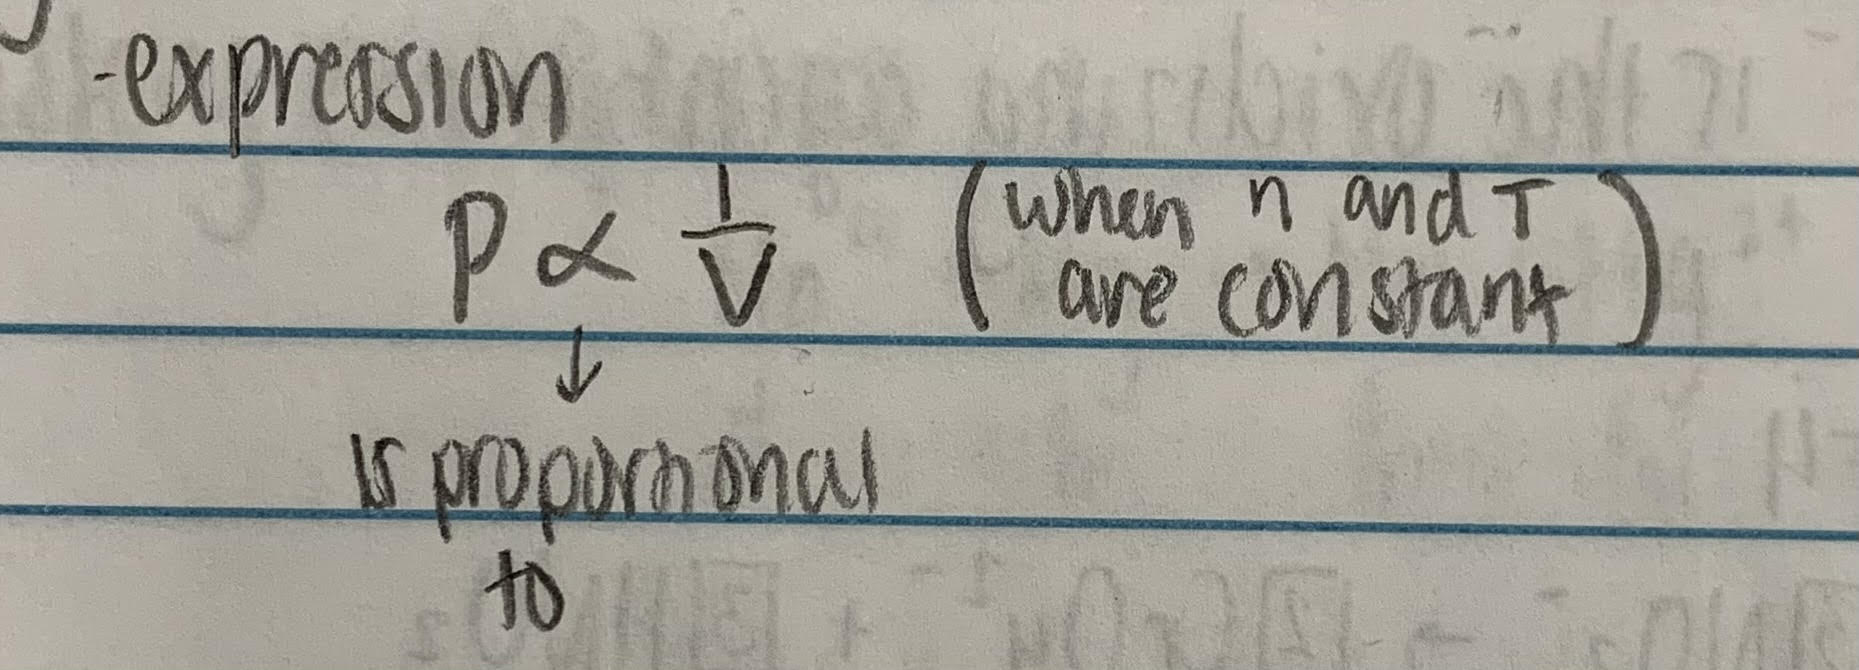 -expression
P ∝ 1/V (when n and T are constant)
↓
is proportional
to